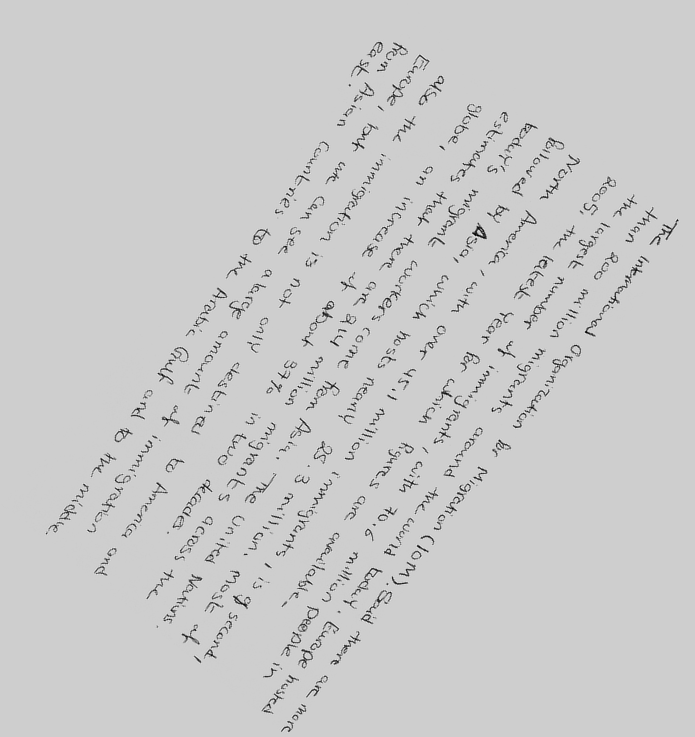 The International Organization for Migration (IOM). Said there are more
than 200 million migrants around the world today. Europe hosted
the largest number of immigrants, with 70.6 million people in
2005, the latest year for which figures are available.
North America, with over 45.1 million immigrants, is a second,
followed by Asia, which hosts nearly 25.3 million. Most of
today's migrant workers come from Asia. The United Nations.
estimates that there are 214 million migrants across the
globe, an increase of about 37% in two decades.
Europe also the immigration is not only destined to America and
from Europe, but we can see a large amount of immigration
east. Asian countries to the Arabic Gulf and to the middle.